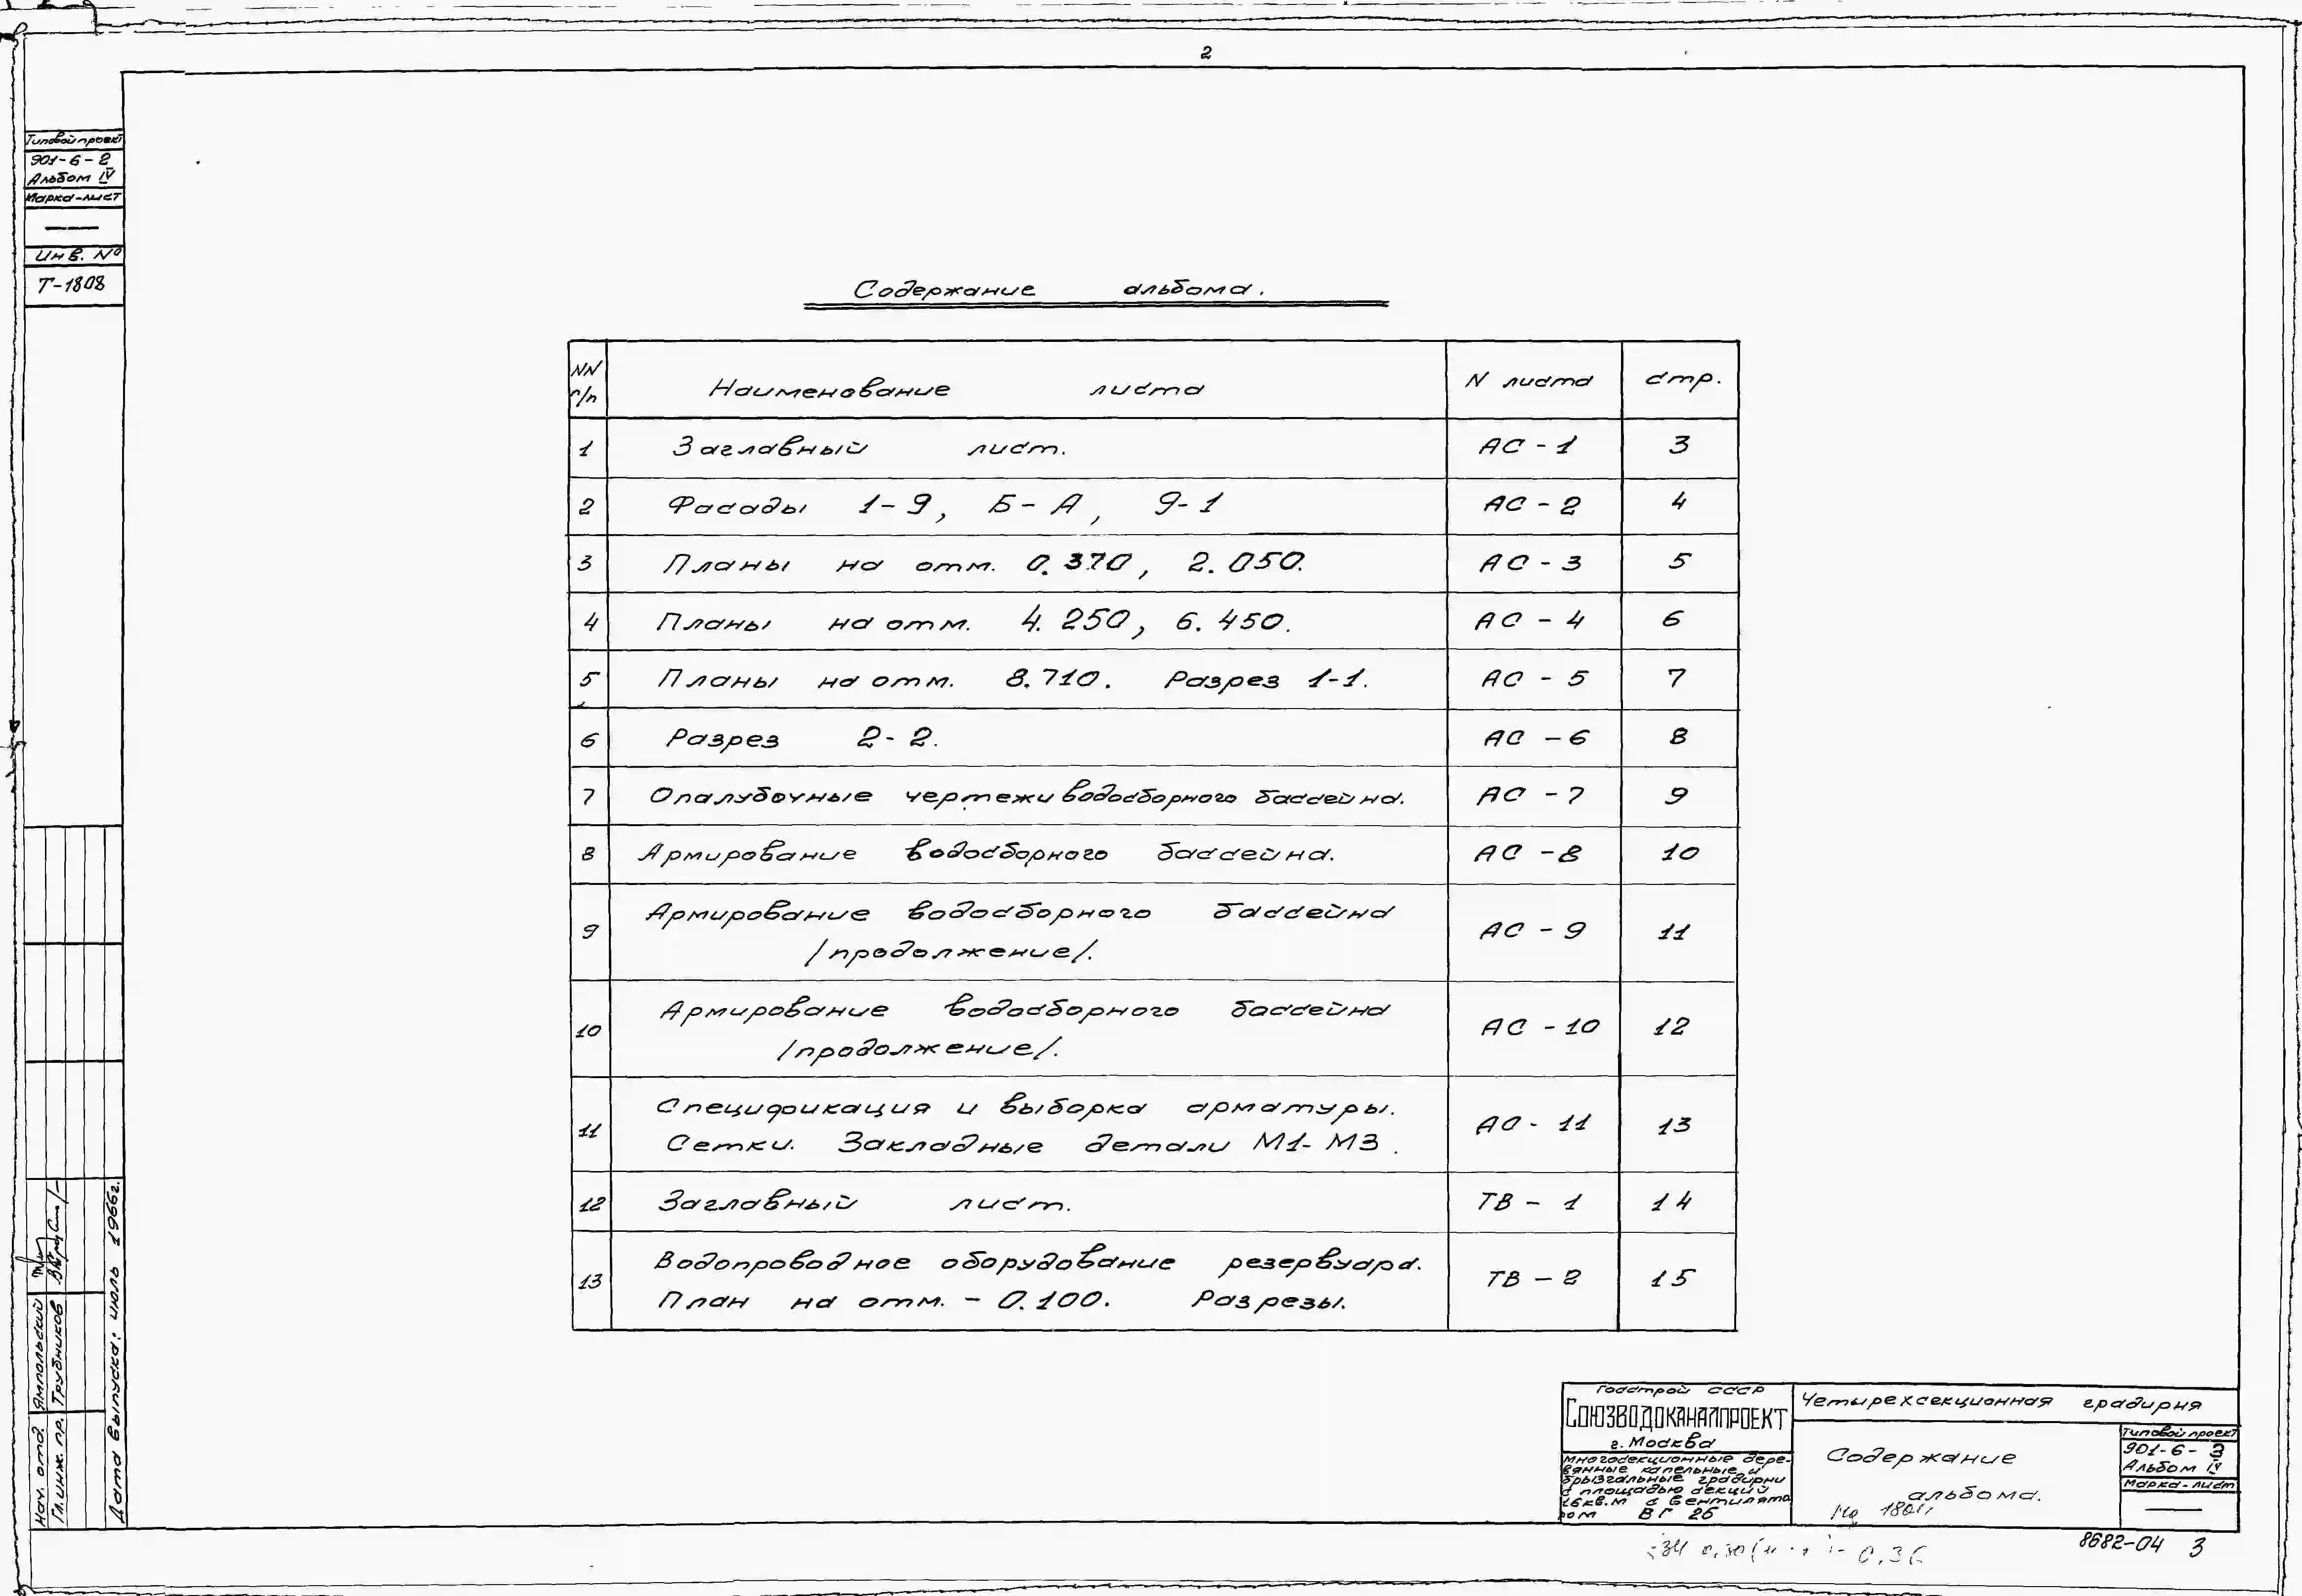 2
Типовой проект
901-6-2
Альбом IV
Марка-лист
—
Инв. №
Т-1808
Содержание альбома.
NN п/п Наименование листа N листа стр.
1 Заглавный лист. АС-1 3
2 Фасады 1-9, Б-А, 9-1 АС-2 4
3 Планы на отм. 0.370, 2.050. АС-3 5
4 Планы на отм. 4.250, 6.450. АС-4 6
5 Планы на отм. 8.710. Разрез 1-1. АС-5 7
6 Разрез 2-2. АС-6 8
7 Опалубочные чертежи водосборного бассейна. АС-7 9
8 Армирование водосборного бассейна. АС-8 10
9 Армирование водосборного бассейна
/продолжение/. АС-9 11
10 Армирование водосборного бассейна
/продолжение/. АС-10 12
11 Спецификация и выборка арматуры.
Сетки. Закладные детали М1-М3. АС-11 13
12 Заглавный лист. ТВ-1 14
13 Водопроводное оборудование резервуара.
План на отм. -0.100. Разрезы. ТВ-2 15
Нач. отд. Ямпольский
Гл.инж. пр. Трубников
Дата выпуска: июль 1966г.
Госстрой СССР
Союзводоканалпроект
г. Москва
Многосекционные дере-
вянные капельные и
брызгальные градирни
с площадью секций
16кв.м с вентилято
ром ВГ 25
Четырехсекционная градирня
Содержание
альбома.
Типовой проект
901-6-3
Альбом IV
Марка-лист
—
8682-04 3